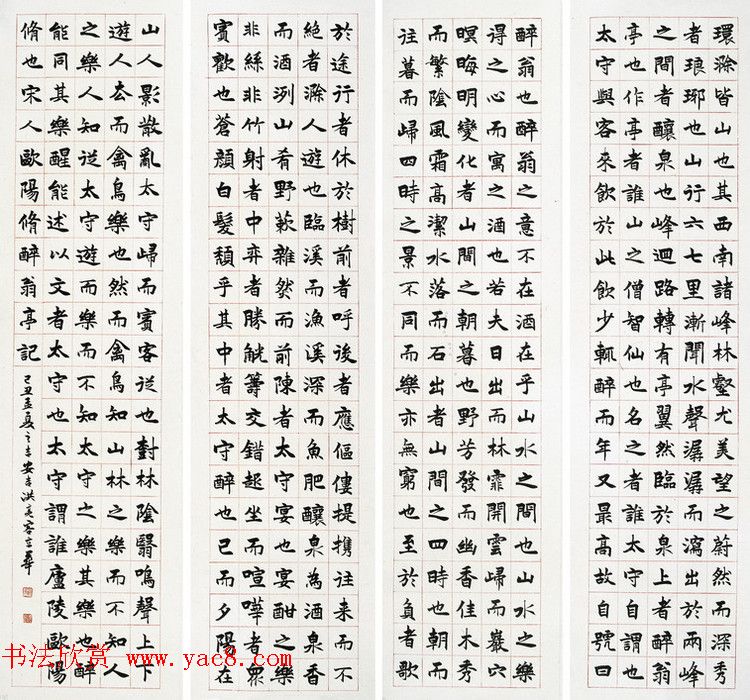 環滁皆山也其西南諸峰林壑尤美望之蔚然而深秀
者琅瑯也山行六七里漸聞水聲潺潺而瀉出於兩峰
之間者釀泉也峰迴路轉有亭翼然臨於泉上者醉翁
亭也作亭者誰山之僧智仙也名之者誰太守自謂也
太守與客來飲於此飲少輒醉而年又最高故自號曰
醉翁也醉翁之意不在酒在乎山水之間也山水之樂
得之心而寓之酒也若夫日出而林霏開雲歸而巖穴
暝晦明變化者山間之朝暮也野芳發而幽香佳木秀
而繁陰風霜高潔水落而石出者山間之四時也朝而
往暮而歸四時之景不同而樂亦無窮也至於負者歌
於途行者休於樹前者呼後者應傴僂提攜往来而不
絕者滁人遊也臨溪而漁溪深而魚肥釀泉為酒泉香
而酒洌山肴野蔌雜然而前陳者太守宴也宴酣之樂
非絲非竹射者中弈者勝觥籌交錯起坐而喧嘩者眾
賓歡也蒼顏白髮頹乎其中者太守醉也已而夕陽在
山人影散亂太守歸而賓客從也樹林陰翳鳴聲上下
遊人去而禽鳥樂也然而禽鳥知山林之樂而不知人
之樂人知從太守遊而樂而不知太守之樂其樂也醉
能同其樂醒能述以文者太守也太守謂誰廬陵歐陽
脩也宋人歐陽脩醉翁亭記
己丑孟夏之吉安吉洪
书法欣赏 www.yac8.com